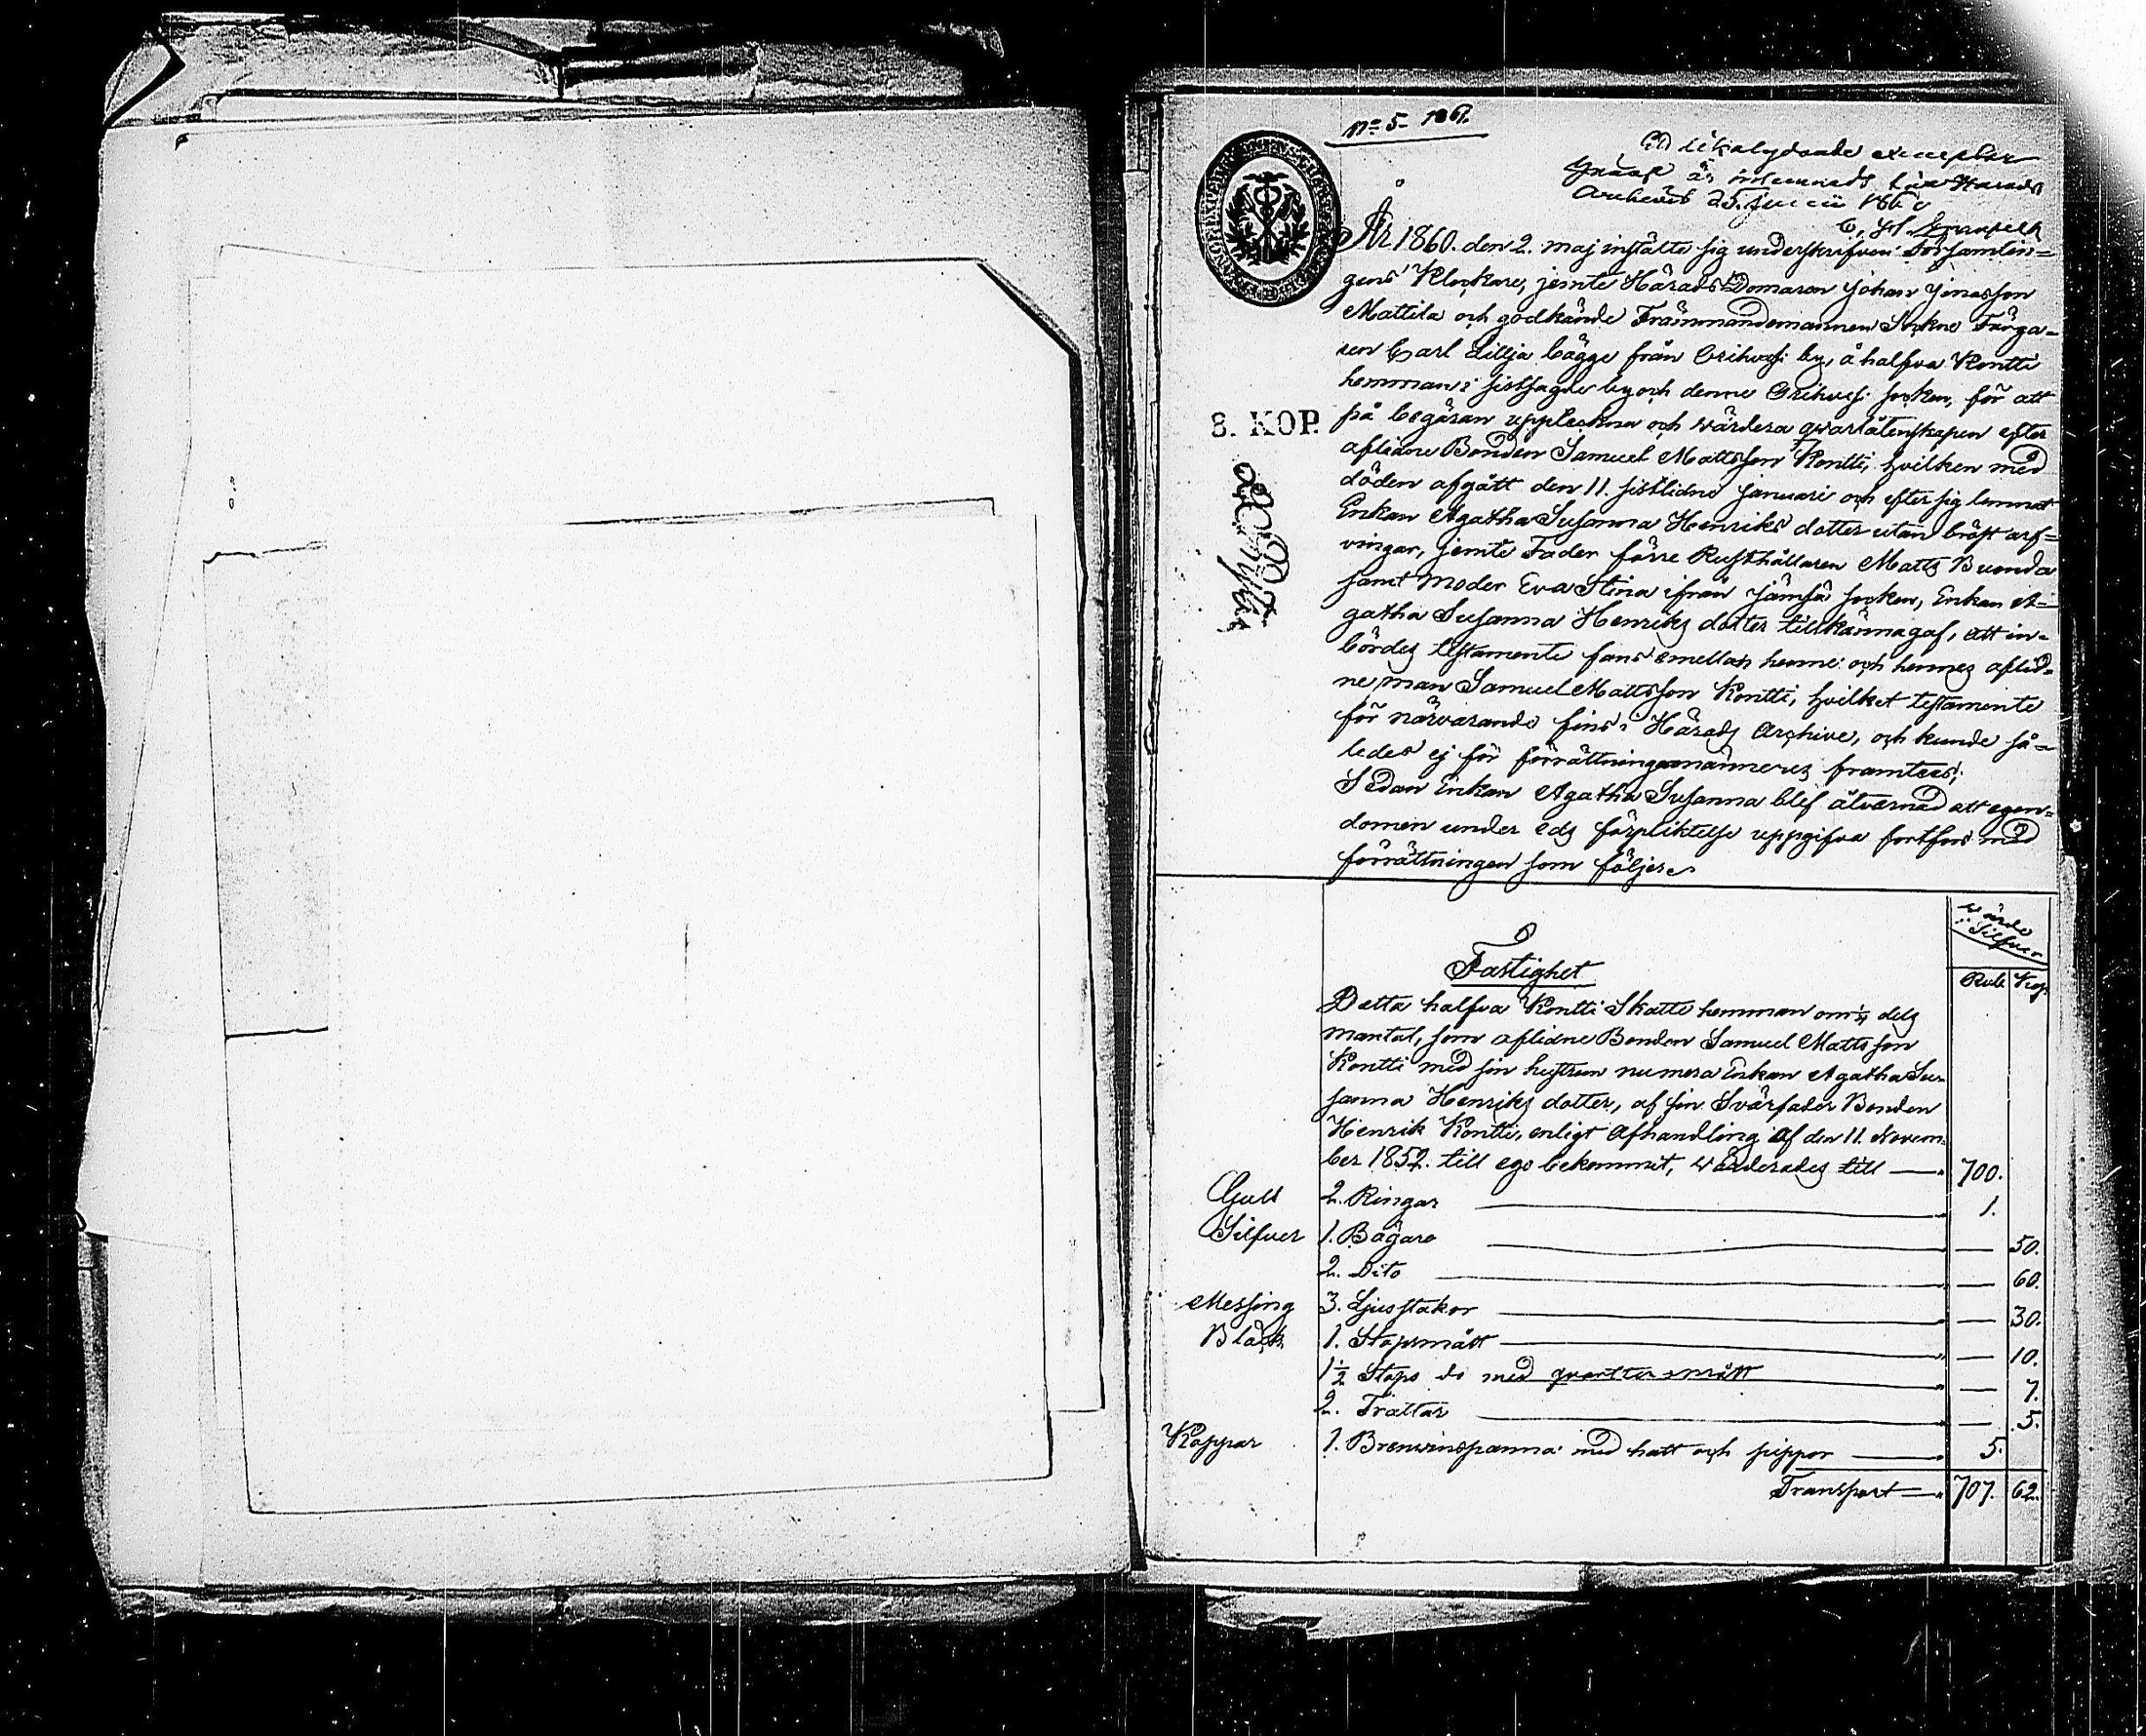 No 5. 1861.
Ett likalydande exemplar
häraf är inlemnadt till Härads
Archivet 25. Junii 1860
År 1860. den 2. maj instälte sig underskrifven Församlin=
gens Klockare, jemte Härads Domaren Johan Jönasson
Mattila och godkände Främmandemannen Sockne Färga=
ren Carl Lillja bägge från Orihvesi by, å halfva Kontti
hemman i sistsagde by och denne Orihvesi socken, för att
på begäran uppteckna och värdera qvarlåtenskapen efter
8. KOP.
aflidne Bonden Samuel Mattsson Kontti, hvilken med
döden afgått den 11. sistlidne Januari och efter sig lemnat
Enkan Agatha Susanna Henriks dotter utan bröst arf=
vingar, jemte Fader förre Rusthållaren Matts Buenda
samt Moder Eva Stina ifrån Jämsä socken, Enkan A=
gatha Susanna Henriks dotter tillkännagaf, att in=
bördes testamente fans emellan henne och hennes aflid=
ne man Samuel Mattsson Kontti, hvilket testamente
för närvarande fins i Härads Archive, och kunde så=
ledes ej för förrättningsmännerne framtees;
Sedan Enkan Agatha Susanna blef åtvarnad att egen=
domen under eds förpliktelse uppgifva fortfors med
förrättningen som följer
Värde
i Silfver
Rub. Kop.
Fastighet
Detta halfva Kontti Skatte hemman om 1/4 dels
mantal, som aflidne Bonden Samuel Matts son
Kontti med sin hustrun numera Enkan Agatha Su=
sanna Henriks dotter, af sin Svärfader Bonden
Henrik Kontti, enligt Afhandling af den 11. Novem=
ber 1852. till ego bekommit, värderades till — 700.
Guld 2. Ringar — 1.
Silfver 1. Bägare — — 50.
2. Dito — — 60.
Messing 3. Ljusstakar — — 30.
Bläck 1. Stopsmått — — 10.
1/2 Stops do med qvarter mått — — 7.
2. Trattar — — 5.
Koppar 1. Brenvinspanna med hatt och pippor — 5.
Transport — 707. 62.